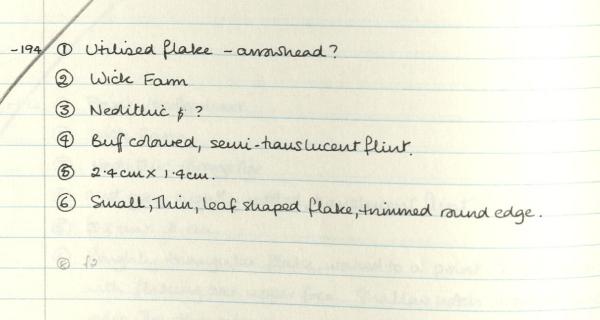 -194 ① Utilised flake - arrowhead?
② Wick Farm
③ Neolithic ?
④ Buf coloured, semi-translucent flint.
⑤ 2.4cm x 1.4cm.
⑥ Small, Thin, leaf shaped flake, trimmed round edge.